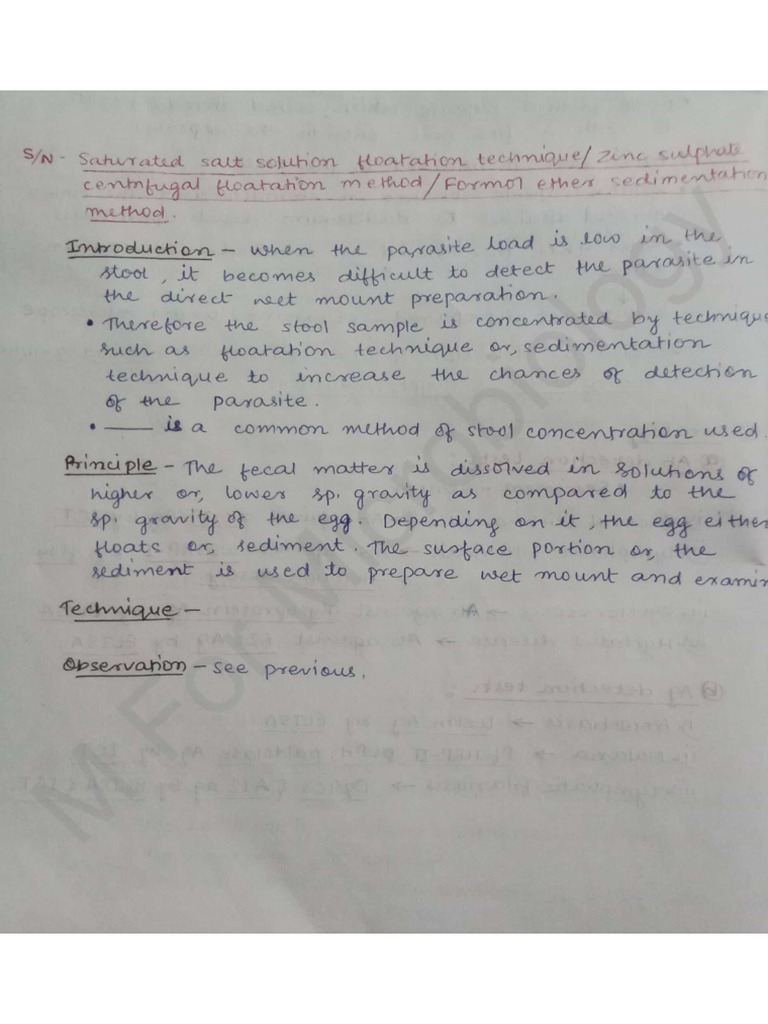 S/N - Saturated salt solution floatation technique/Zinc sulphate
centrifugal floatation method/Formol ether sedimentation
method.
Introduction - when the parasite load is low in the
stool, it becomes difficult to detect the parasite in
the direct wet mount preparation.
• Therefore the stool sample is concentrated by technique
such as floatation technique or, sedimentation
technique to increase the chances of detection
of the parasite.
• —— is a common method of stool concentration used.
Principle - The fecal matter is dissolved in solutions of
higher or, lower sp. gravity as compared to the
sp. gravity of the egg. Depending on it, the egg either
floats or, sediment. The surface portion or, the
sediment is used to prepare wet mount and examin
Technique -
Observation - see previous.
M For Microbiology